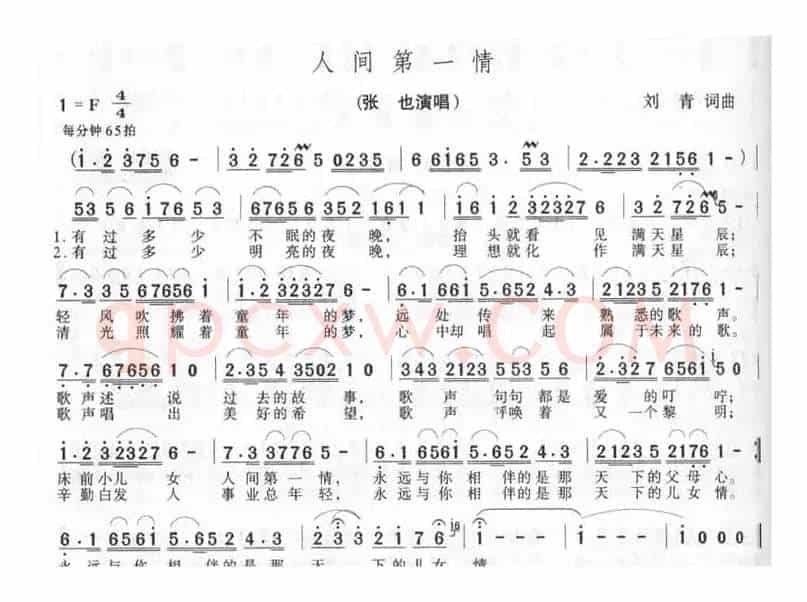 人间第一情
1=F 4/4 (张 也演唱) 刘 青 词曲
每分钟65拍
(1·2 3756 - | 32 726 5 0235 | 6 6165 3· 53 | 2·223 2156 1 - ) |
53 56 176 53 | 67656 352 1611 | 1612 323276 | 3 2 726 5 - |
1.有过多少 不眠的夜晚, 抬头就看 见满天星辰;
2.有过多少 明亮的夜晚, 理想就化 作满天星辰;
7·3 35 67656i | 1·2 32327 6 | 6·165 1 5·6524·3 | 2123523 2176 1 |
轻风吹拂着童年的梦, 远处传来熟悉的歌声。
清光照耀着童年的梦, 心中却唱起属于未来的歌。
7·7 67656 10 | 2·354 350210 | 343 2123 5·55 | 2·327 6561 5 |
歌声述说过去的故事, 歌声句句都是爱的叮咛;
歌声唱出美好的希望, 歌声呼唤着又一个黎明;
1·2 32327 6 | 7·3 33776 5 | 6·16561 5·6524·3 | 2123 5·2176 1 - :|
床前小儿女 人间第一情, 永远与你相伴的是那天下的父母心。
辛勤白发人 事业总年轻, 永远与你相伴的是那天下的儿女情。
6·16561 5·6524·3 | 2 3 3 2·2 1217 6 | 1 - - - | 1 - 1 - | 1 0 0 0 ‖
永远与你相伴的是那天下的儿女情
gpcxw.com